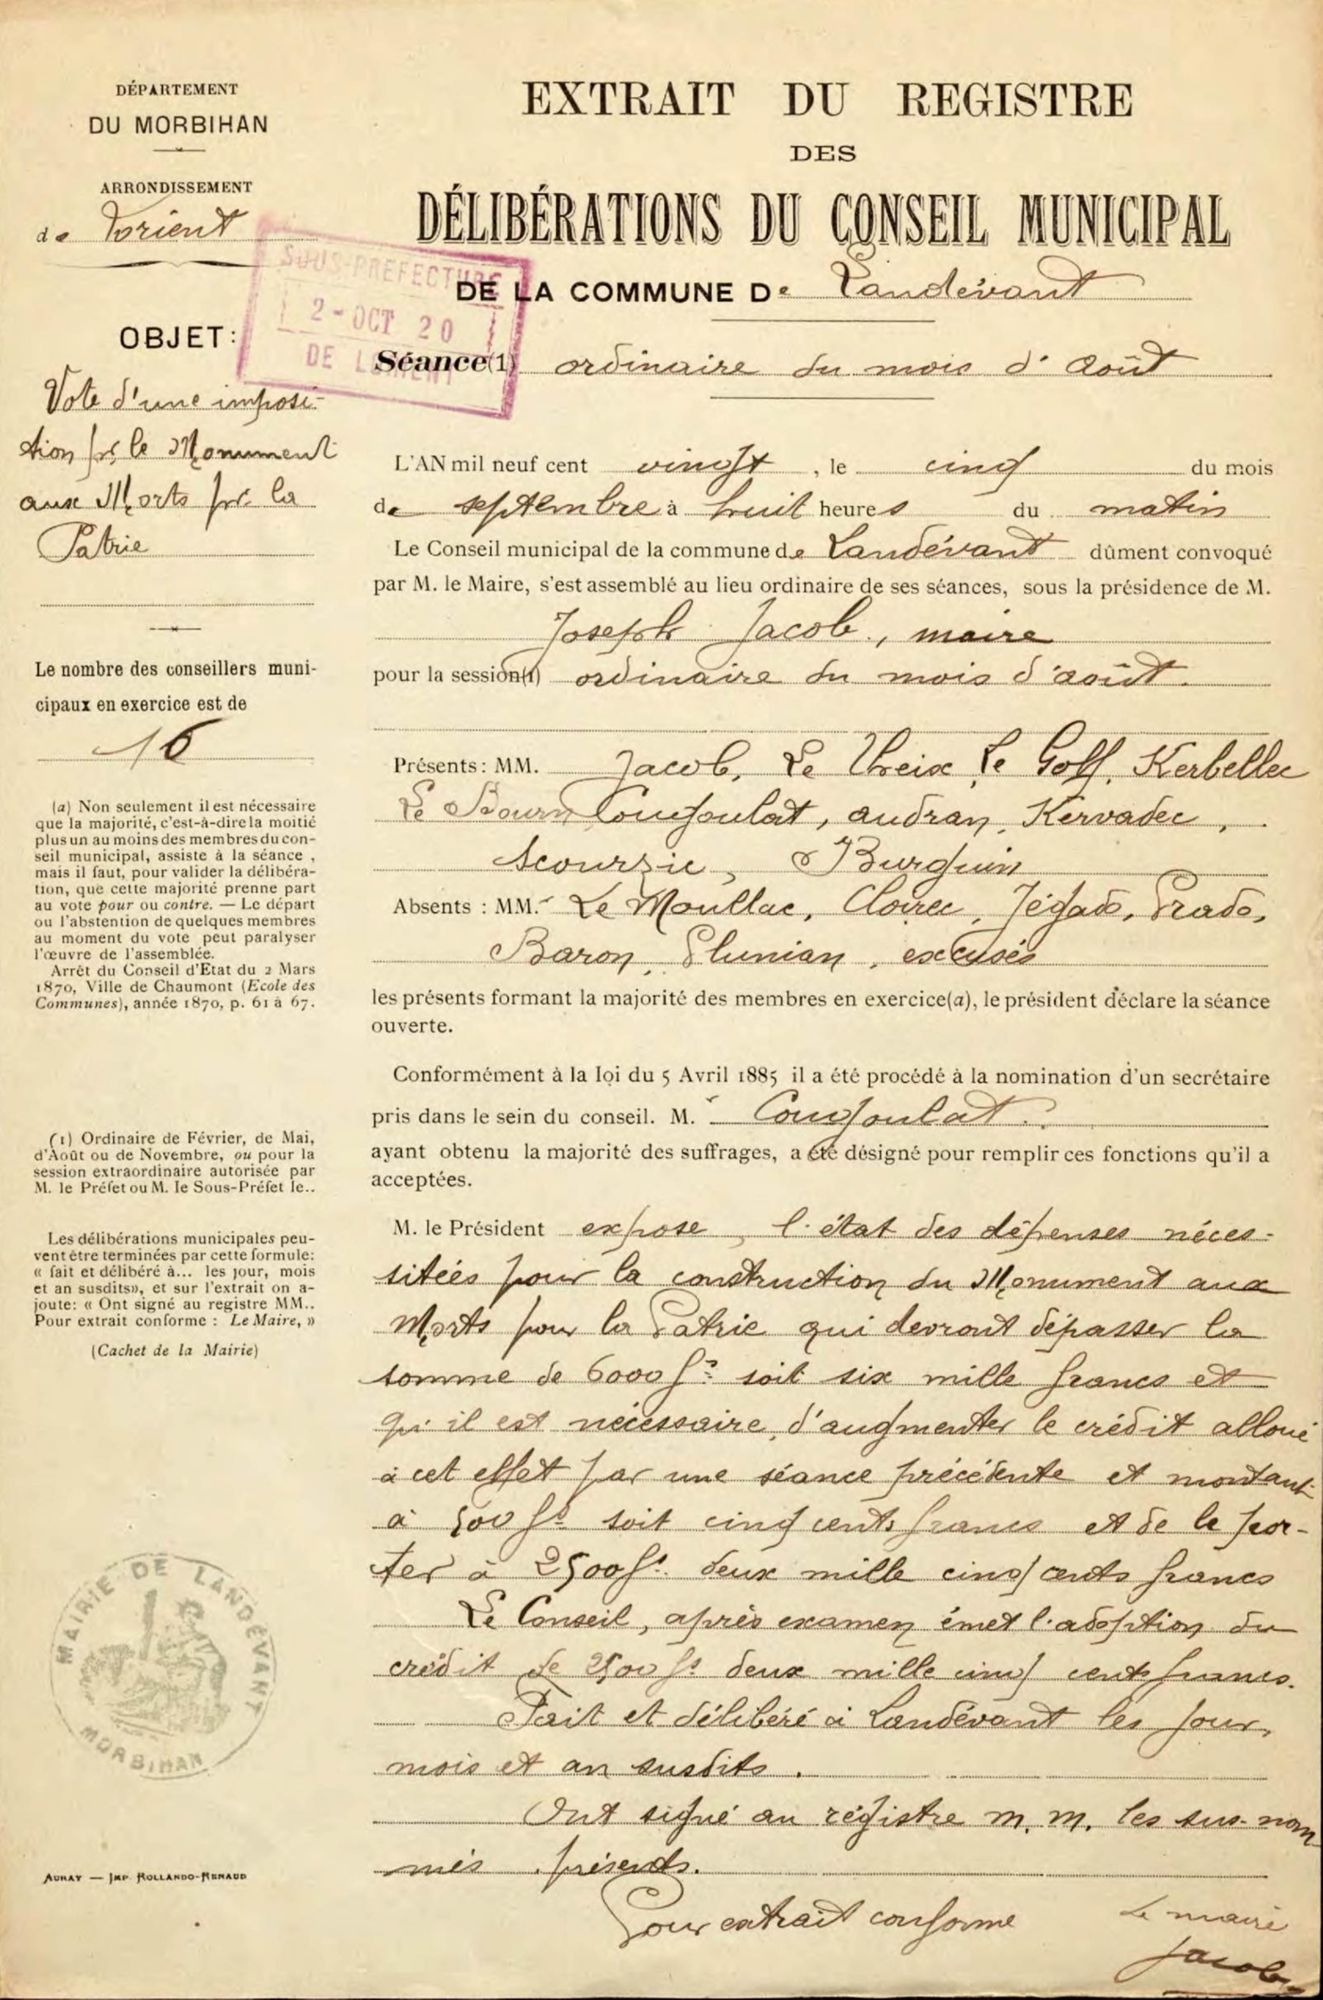 DÉPARTEMENT
DU MORBIHAN
ARRONDISSEMENT
de Lorient
OBJET:
Vote d'une imposi-
tion pr. le Monument
aux Morts pr. la
Patrie
Le nombre des conseillers muni-
cipaux en exercice est de
16
(a) Non seulement il est nécessaire
que la majorité, c'est-à-dire la moitié
plus un au moins des membres du con-
seil municipal, assiste à la séance,
mais il faut, pour valider la délibéra-
tion, que cette majorité prenne part
au vote pour ou contre. — Le départ
ou l'abstention de quelques membres
au moment du vote peut paralyser
l'œuvre de l'assemblée.
Arrêt du Conseil d'Etat du 2 Mars
1870, Ville de Chaumont (Ecole des
Communes), année 1870, p. 61 à 67.
(1) Ordinaire de Février, de Mai,
d'Août ou de Novembre, ou pour la
session extraordinaire autorisée par
M. le Préfet ou M. le Sous-Préfet le..
Les délibérations municipales peu-
vent être terminées par cette formule:
« fait et délibéré à... les jour, mois
et an susdits», et sur l'extrait on a-
joute: « Ont signé au registre MM..
Pour extrait conforme : Le Maire, »
(Cachet de la Mairie)
MAIRIE DE LANDÉVANT
MORBIHAN
AURAY — IMP. ROLLANDO-RENAUD
SOUS-PREFECTURE
2 - OCT 20
DE LORIENT
EXTRAIT DU REGISTRE
DES
DÉLIBÉRATIONS DU CONSEIL MUNICIPAL
DE LA COMMUNE De Landévant
Séance(1) ordinaire du mois d'août
L'AN mil neuf cent vingt, le cinq du mois
de septembre à huit heures du matin
Le Conseil municipal de la commune de Landévant dûment convoqué
par M. le Maire, s'est assemblé au lieu ordinaire de ses séances, sous la présidence de M.
Joseph Jacob, maire
pour la session(1) ordinaire du mois d'août.
Présents: MM. Jacob, Le Goff, Kerbellec
Le Bourn, Audran, Kervadec,
Burguin
Absents : MM. Le Moullac, Cloirec, Jégado, Prado,
Baron, Plunian, excusés
les présents formant la majorité des membres en exercice(a), le président déclare la séance
ouverte.
Conformément à la loi du 5 Avril 1885 il a été procédé à la nomination d'un secrétaire
pris dans le sein du conseil. M.
ayant obtenu la majorité des suffrages, a été désigné pour remplir ces fonctions qu'il a
acceptées.
M. le Président expose, l'état des dépenses néces-
sitées pour la construction du Monument aux
Morts pour la Patrie qui devront dépasser la
somme de 6000 frs soit six mille francs et
qu'il est nécessaire, d'augmenter le crédit alloué
à cet effet par une séance précédente et montant
à 500 frs soit cinq cents francs et de le por-
ter à 2500 frs. deux mille cinq cents francs
Le Conseil, après examen émet l'adoption du
crédit de 2500 frs deux mille cinq cents francs.
Fait et délibéré à Landévant les jour,
mois et an susdits.
Ont signé au régistre m. m. les sus-nom
més présents.
Pour extrait conforme
Le maire
Jacob